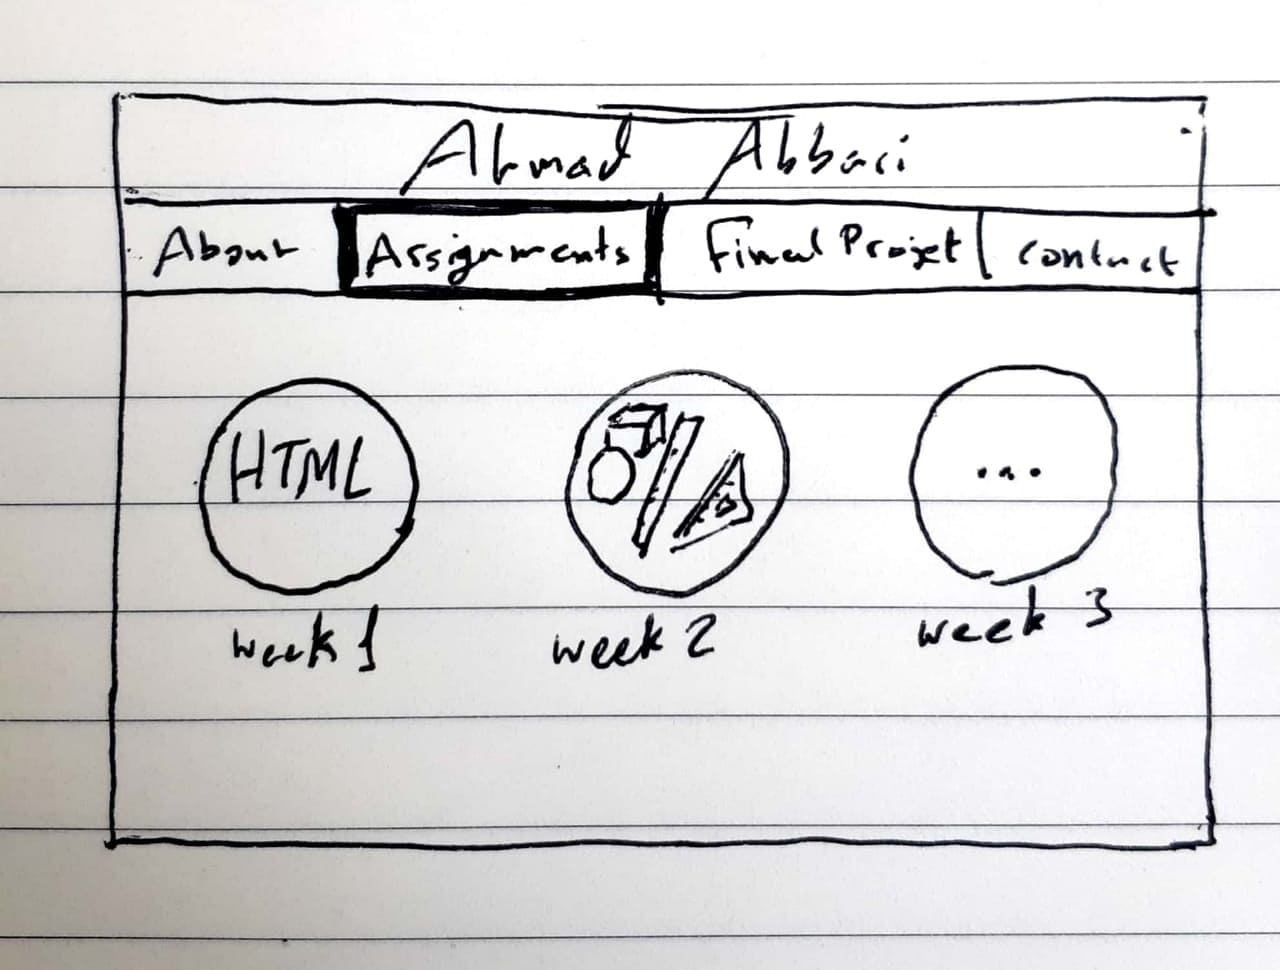 Ahmad Abbasi
About Assignments Final Projet Contact
HTML ...
week 1 week 2 week 3